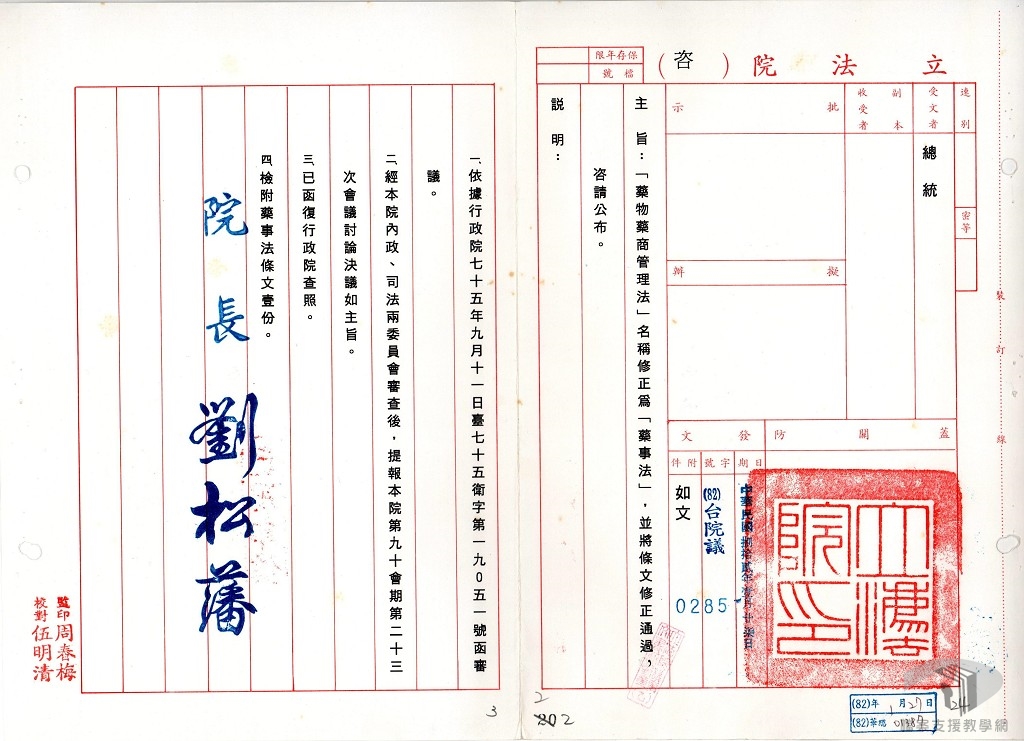 立法院（咨）
保存年限
檔號
速別
密等
受文者
總統
副本收受者
批示
擬辦
蓋關防
發文
日期
中華民國捌拾貳年壹月廿柒日
字號
(82)台院議
0285
附件
如文
立法院印
主旨：「藥物藥商管理法」名稱修正為「藥事法」，並將條文修正通過，
咨請公布。
說明：
一、依據行政院七十五年九月十一日臺七十五衛字第一九０五一號函審
議。
二、經本院內政、司法兩委員會審查後，提報本院第九十會期第二十三
次會議討論決議如主旨。
三、已函復行政院查照。
四、檢附藥事法條文壹份。
院長 劉松藩
監印 周春梅
校對 伍明清
裝訂線
(82)年1月27日
24
(82)華總 01387
2
202
3
檔案支援教學網